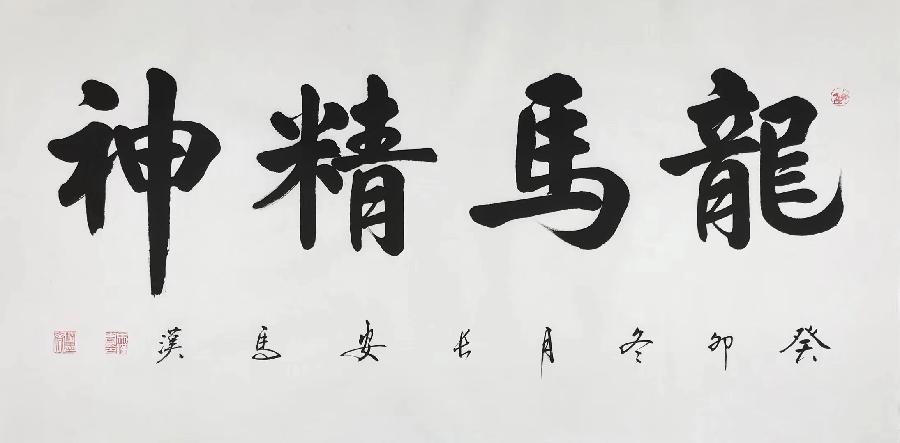 龍馬精神
癸卯冬月长安馬漢